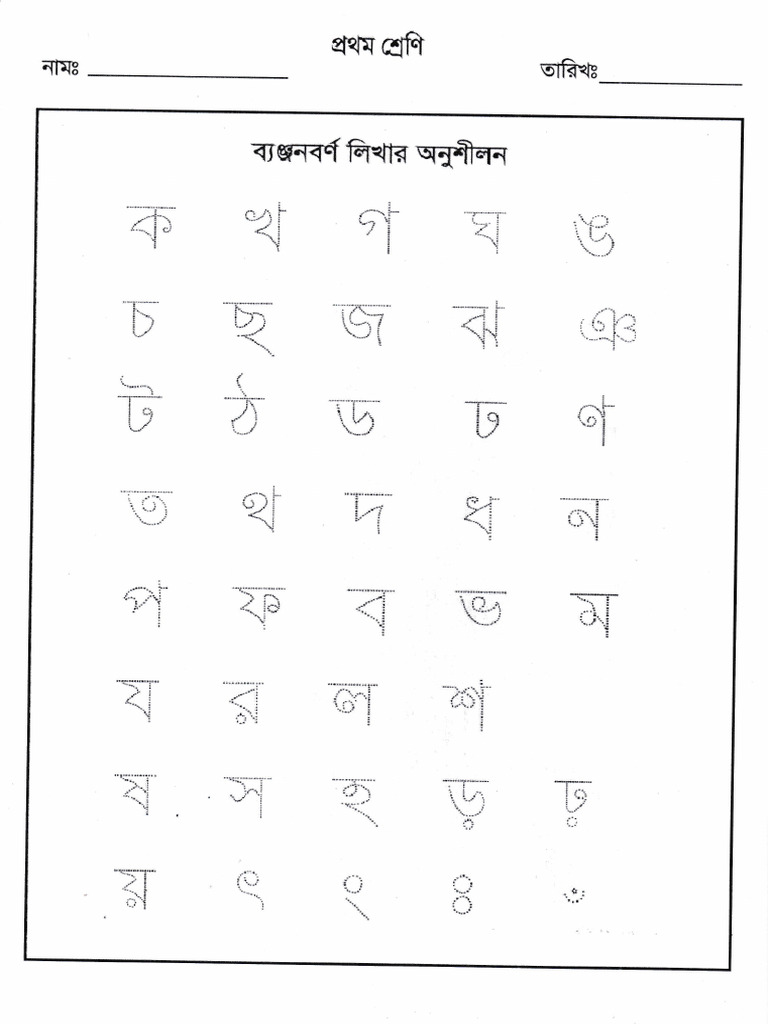 প্রথম শ্রেণি
নামঃ ____________ তারিখঃ ____________
ব্যঞ্জনবর্ণ লিখার অনুশীলন
ক খ গ ঘ ঙ
চ ছ জ ঝ ঞ
ট ঠ ড ঢ ণ
ত থ দ ধ ন
প ফ ব ভ ম
য র ল শ
ষ স হ ড় ঢ়
য় ৎ ং ঃ ঁ